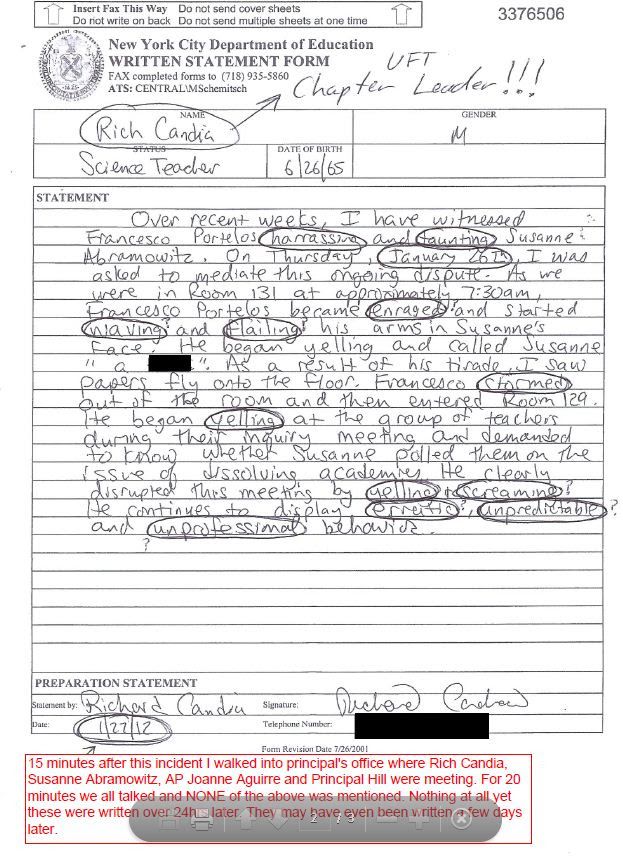 Insert Fax This Way Do not send cover sheets
Do not write on back Do not send multiple sheets at one time
3376506
New York City Department of Education
WRITTEN STATEMENT FORM
FAX completed forms to (718) 935-5860
ATS: CENTRAL\MSchemitsch
UFT
Chapter Leader!!!
NAME
GENDER
Rich Candia
M
STATUS
DATE OF BIRTH
Science Teacher
6/26/65
STATEMENT
Over recent weeks, I have witnessed
Francesco Portelos harrassing and taunting Susanne
Abramowitz. On Thursday, January 26th, I was
asked to mediate this ongoing dispute. As we
were in Room 131 at approximately 7:30am,
Francesco Portelos became enraged and started
waving and flailing his arms in Susanne's
face. He began yelling and called Susanne
"a ". As a result of his tirade, I saw
papers fly onto the floor. Francesco stormed
out of the room and then entered Room 129.
He began yelling at the group of teachers
during their inquiry meeting and demanded
to know whether Susanne polled them on the
issue of dissolving academies. He clearly
disrupted this meeting by yelling + screaming?
He continues to display erreitic?, unpredictable?
and unprofessional behavior.
?
PREPARATION STATEMENT
Statement by: Richard Candia Signature: Richard Candia
Date: 1/27/12 Telephone Number:
Form Revision Date 7/26/2001
15 minutes after this incident I walked into principal's office where Rich Candia,
Susanne Abramowitz, AP Joanne Aguirre and Principal Hill were meeting. For 20
minutes we all talked and NONE of the above was mentioned. Nothing at all yet
these were written over 24hrs later. They may have even been written a few days
later.
2 / 3